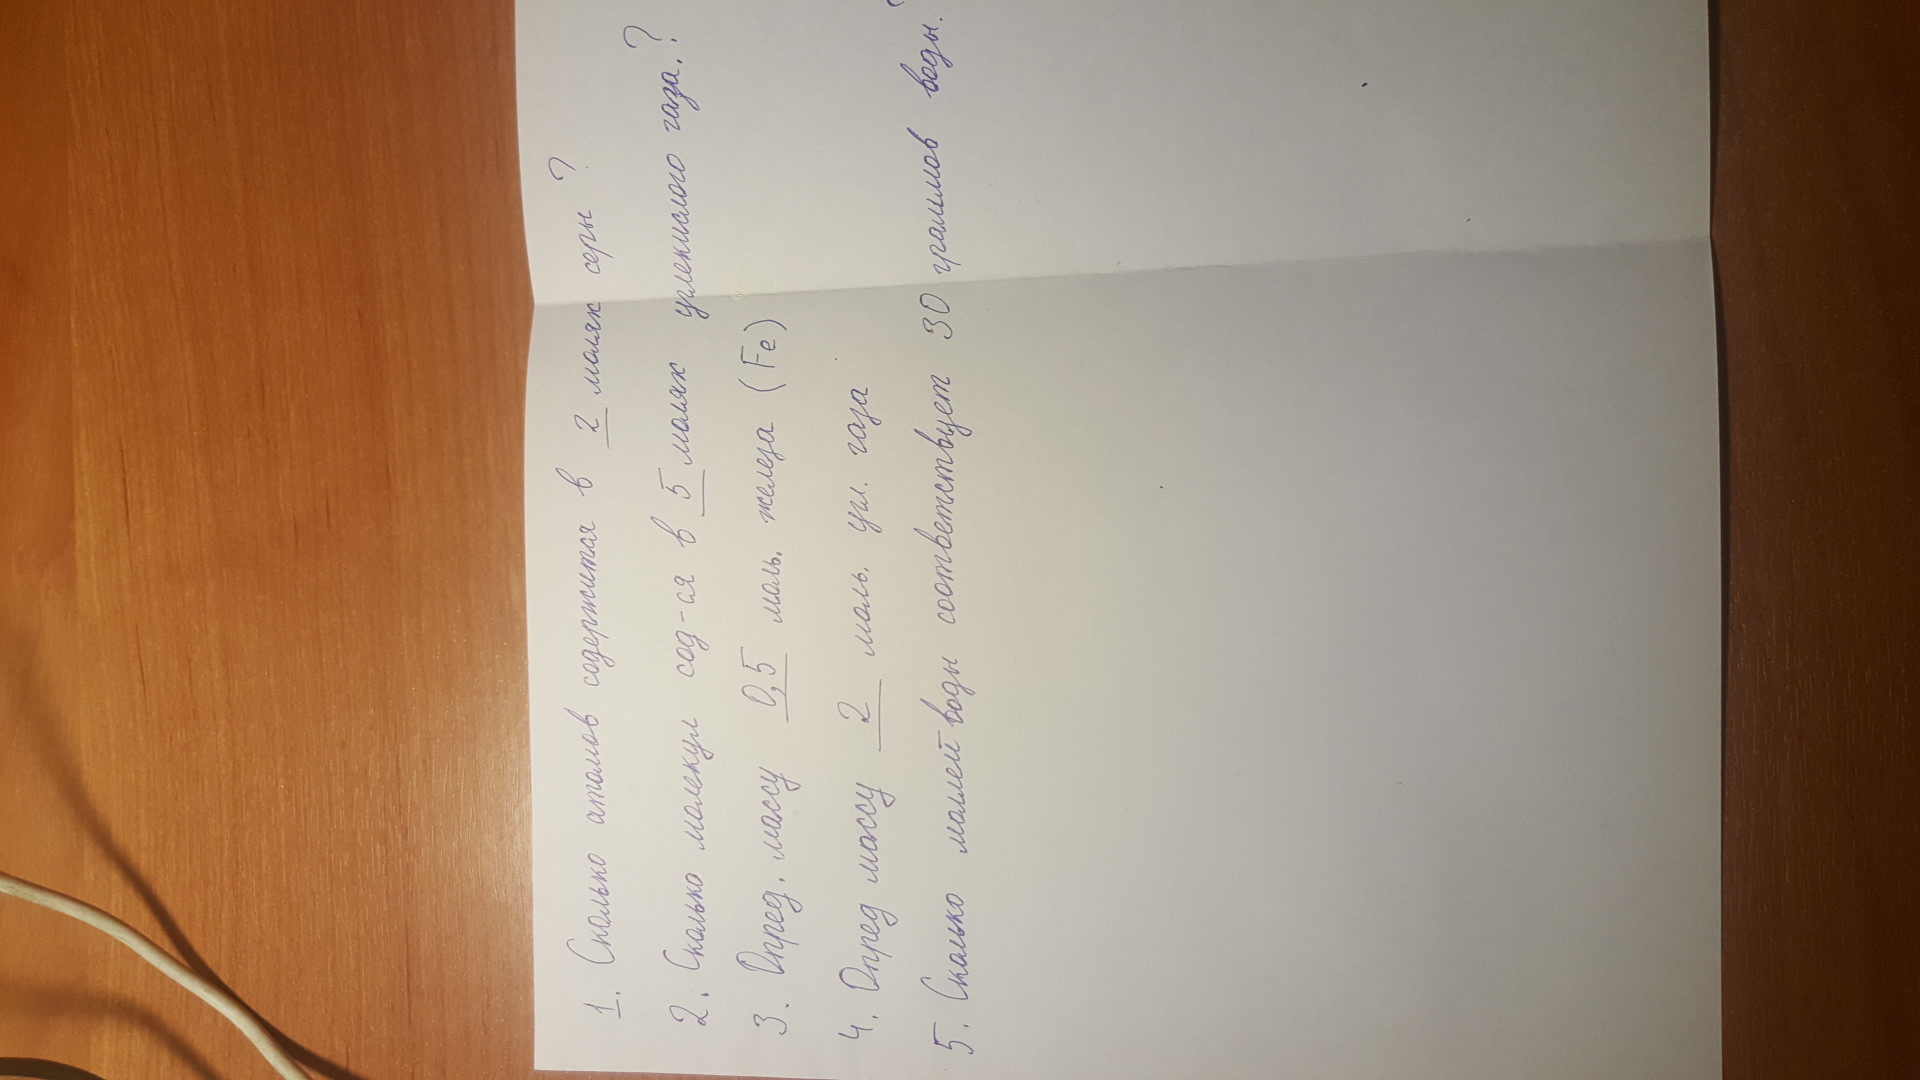 1. Сколько атомов содержится в 2 молях серы ?
2. Сколько молекул сод-ся в 5 молях углекислого газа.?
3. Опред. массу 0,5 моль. железа (Fe)
4. Опред массу 2 моль. угл. газа
5. Сколько молей воды соответствует 30 граммов воды.?